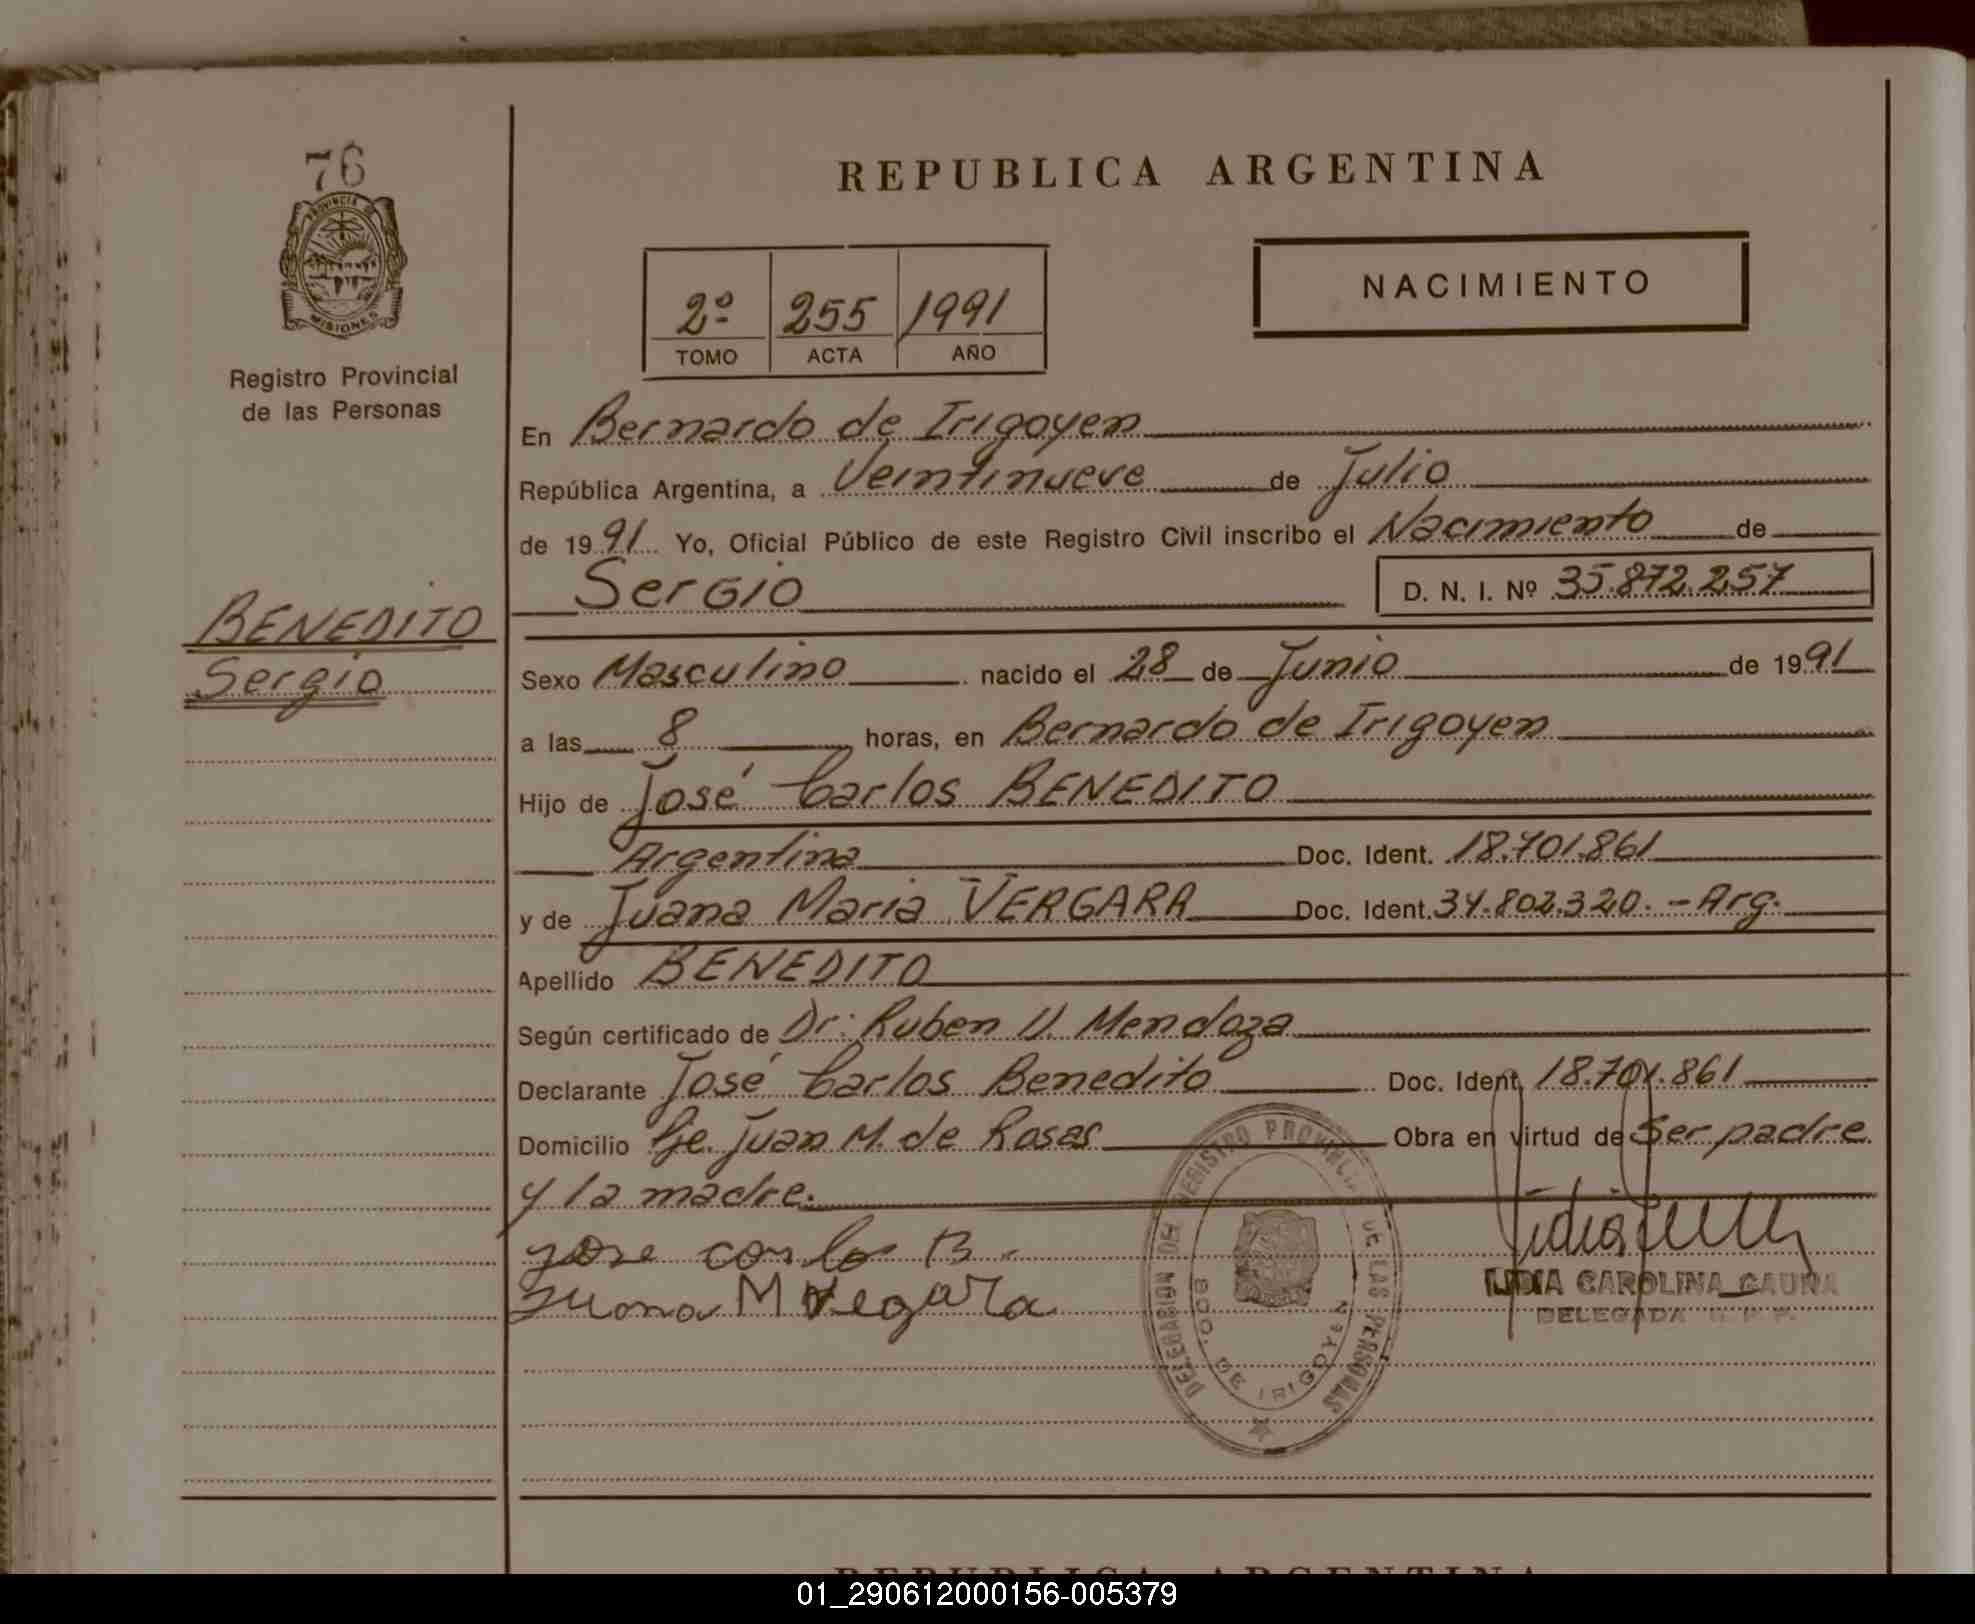 76
PROVINCIA DE
MISIONES
Registro Provincial
de las Personas
BENEDITO
Sergio
REPUBLICA ARGENTINA
2º 255 1991
TOMO ACTA AÑO
NACIMIENTO
En Bernardo de Irigoyen
República Argentina, a Veintinueve de Julio
de 1991 Yo, Oficial Público de este Registro Civil inscribo el Nacimiento de
Sergio D. N. I. Nº 35.872.257
Sexo Masculino nacido el 28 de Junio de 1991
a las 8 horas, en Bernardo de Irigoyen
Hijo de José Carlos BENEDITO
Argentina Doc. Ident. 18.701.861
y de Juana Maria VERGARA Doc. Ident. 34.802.320.-Arg.
Apellido BENEDITO
Según certificado de Dr: Ruben V. Mendoza
Declarante José Carlos Benedito Doc. Ident. 18.701.861
Domicilio Pje. Juan M. de Rosas Obra en virtud de Ser padre
y la madre.
jose carlos B.
Juana M Vegara
DELEGACION DEL REGISTRO PROVINCIAL DE LAS PERSONAS
BDO. DE IRIGOYEN
LIDIA CAROLINA GAUNA
DELEGADA R. P. P.
REPUBLICA ARGENTINA
01_290612000156-005379